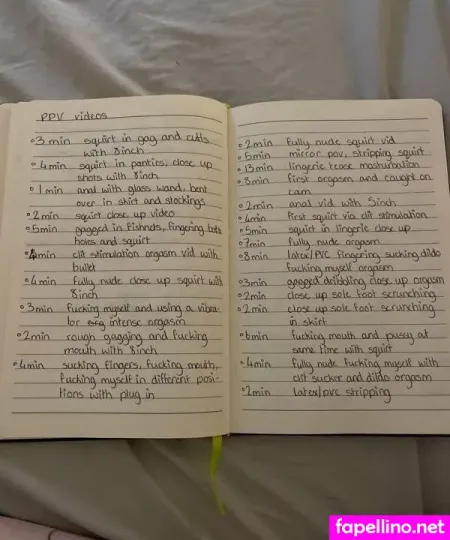 PPV videos
•3 min squirt in gag and cuffs
with 8inch
•4min squirt in panties, close up
shots with 8inch
•1 min anal with glass wand, bent
over in skirt and stockings
•2 min squirt close up video
•5min gagged in fishnets, fingering both
holes and squirt
•4min clit stimulation orgasm vid with
bullet
•4 min fully nude close up squirt with
8inch
•3 min fucking myself and using a vibra-
tor intense orgasm
•2min rough gagging and fucking
mouth with 8inch
•4min sucking fingers, fucking mouth,
fucking myself in different posi-
tions with plug in
•2min fully nude squirt vid
•5min mirror pov, stripping squirt
•13min lingerie tease masturbation
•3min first orgasm and caught on
cam
•2min anal vid with 5inch
•4min first squirt via clit stimulation
•5min squirt in lingerie close up
•7min fully nude orgasm
•8min latex/PVC fingering, sucking dildo
fucking myself orgasm
•3min gagged dribbling close up orgasm
•2min close up sole foot scrunching
•2min close up sole foot scrunching
in skirt
•6min fucking mouth and pussy at
same time with squirt
•4min fully nude fucking myself with
clit sucker and dildo orgasm
•2min latex/pvc stripping
fapellino.net